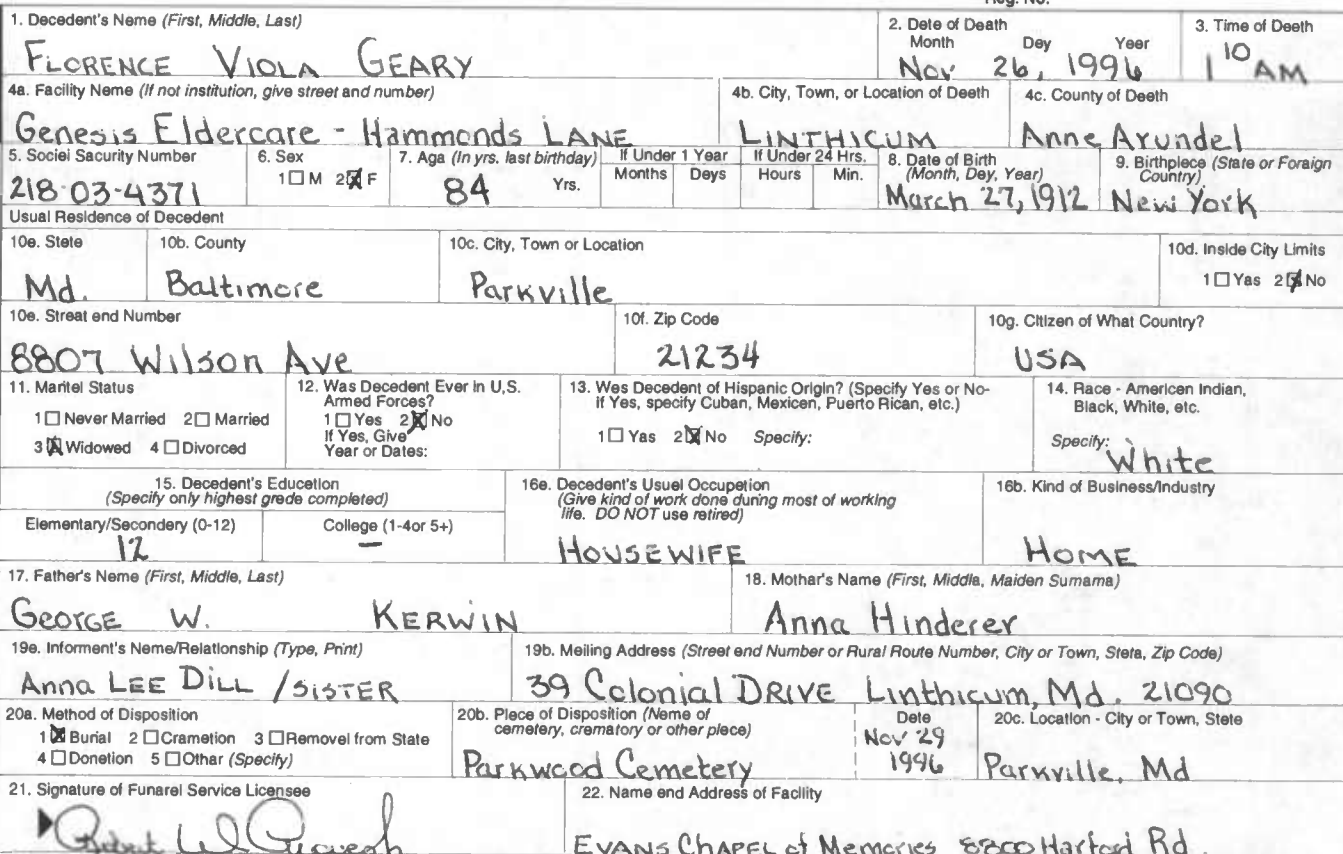 1. Decedent's Name (First, Middle, Last)
FLORENCE VIOLA GEARY
2. Dete of Death
Month Dey Yeer
Nov 26, 1996
3. Time of Deeth
1 10 AM
4a. Facility Name (If not institution, give street and number)
Genesis Eldercare - Hammonds LANE
4b. City, Town, or Location of Deeth
LINTHICUM
4c. County of Deeth
Anne Arundel
5. Sociel Sacurity Number
218-03-4371
6. Sex
1☐ M 2☒ F
7. Aga (In yrs. last birthday)
84 Yrs.
If Under 1 Year
Months Deys
If Under 24 Hrs.
Hours Min.
8. Date of Birth
(Month, Day, Year)
March 27, 1912
9. Birthplece (State or Foreign
Country)
New York
Usual Residence of Decedent
10e. Stete
Md.
10b. County
Baltimore
10c. City, Town or Location
Parkville
10d. Inside City Limits
1☐ Yas 2☒ No
10e. Streat end Number
8807 Wilson Ave
10f. Zip Code
21234
10g. Citizen of What Country?
USA
11. Maritel Status
1☐ Never Married 2☐ Married
3☒ Widowed 4☐ Divorced
12. Was Decedent Ever in U.S.
Armed Forces?
1☐ Yes 2☒ No
If Yes, Give
Year or Dates:
13. Wes Decedent of Hispanic Origin? (Specify Yes or No-
If Yes, specify Cuban, Mexicen, Puerto Rican, etc.)
1☐ Yas 2☒ No Specify:
14. Race - Americen Indian,
Black, White, etc.
Specify:
White
15. Decedent's Education
(Specify only highest grede completed)
Elementary/Secondery (0-12)
12
College (1-4or 5+)
—
16e. Decedent's Usuel Occupetion
(Give kind of work done during most of working
life. DO NOT use retired)
HOUSEWIFE
16b. Kind of Business/Industry
HOME
17. Father's Name (First, Middle, Last)
George W. KERWIN
18. Mothar's Name (First, Middla, Maiden Sumama)
Anna Hinderer
19e. Informent's Neme/Relationship (Type, Print)
Anna LEE DILL / SISTER
19b. Meiling Address (Street end Number or Rural Route Number, City or Town, Steta, Zip Code)
39 Colonial DRIVE Linthicum, Md. 21090
20a. Method of Disposition
1☒ Burial 2☐ Crametion 3☐ Removel from State
4☐ Donetion 5☐ Othar (Specify)
20b. Plece of Disposition (Neme of
cemetery, crematory or other plece)
Parkwood Cemetery
Dete
Nov 29
1996
20c. Location - City or Town, Stete
Parkville, Md
21. Signature of Funarel Service Licensee
22. Name end Address of Facility
EVANS CHAPEL of Memories 8800 Harford Rd.